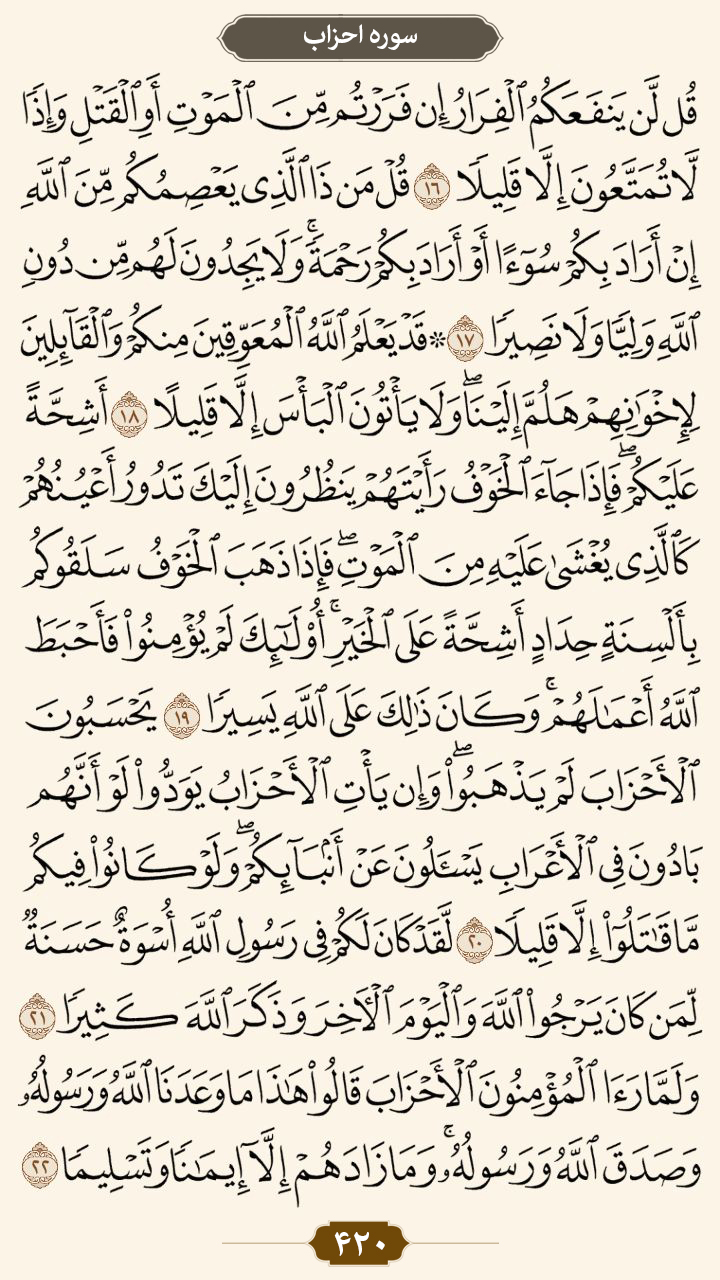 سوره احزاب
قُل لَّن يَنفَعَكُمُ ٱلْفِرَارُ إِن فَرَرْتُم مِّنَ ٱلْمَوْتِ أَوِ ٱلْقَتْلِ وَإِذًا
لَّا تُمَتَّعُونَ إِلَّا قَلِيلًا ١٦ قُلْ مَن ذَا ٱلَّذِى يَعْصِمُكُم مِّنَ ٱللَّهِ
إِنْ أَرَادَ بِكُمْ سُوٓءًا أَوْ أَرَادَ بِكُمْ رَحْمَةً ۚ وَلَا يَجِدُونَ لَهُم مِّن دُونِ
ٱللَّهِ وَلِيًّا وَلَا نَصِيرًا ١٧ ۞ قَدْ يَعْلَمُ ٱللَّهُ ٱلْمُعَوِّقِينَ مِنكُمْ وَٱلْقَآئِلِينَ
لِإِخْوَٰنِهِمْ هَلُمَّ إِلَيْنَا ۖ وَلَا يَأْتُونَ ٱلْبَأْسَ إِلَّا قَلِيلًا ١٨ أَشِحَّةً
عَلَيْكُمْ ۖ فَإِذَا جَآءَ ٱلْخَوْفُ رَأَيْتَهُمْ يَنظُرُونَ إِلَيْكَ تَدُورُ أَعْيُنُهُمْ
كَٱلَّذِى يُغْشَىٰ عَلَيْهِ مِنَ ٱلْمَوْتِ ۖ فَإِذَا ذَهَبَ ٱلْخَوْفُ سَلَقُوكُم
بِأَلْسِنَةٍ حِدَادٍ أَشِحَّةً عَلَى ٱلْخَيْرِ ۚ أُو۟لَٰٓئِكَ لَمْ يُؤْمِنُوا۟ فَأَحْبَطَ
ٱللَّهُ أَعْمَٰلَهُمْ ۚ وَكَانَ ذَٰلِكَ عَلَى ٱللَّهِ يَسِيرًا ١٩ يَحْسَبُونَ
ٱلْأَحْزَابَ لَمْ يَذْهَبُوا۟ ۖ وَإِن يَأْتِ ٱلْأَحْزَابُ يَوَدُّوا۟ لَوْ أَنَّهُم
بَادُونَ فِى ٱلْأَعْرَابِ يَسْـَٔلُونَ عَنْ أَنۢبَآئِكُمْ ۖ وَلَوْ كَانُوا۟ فِيكُم
مَّا قَٰتَلُوٓا۟ إِلَّا قَلِيلًا ٢٠ لَّقَدْ كَانَ لَكُمْ فِى رَسُولِ ٱللَّهِ أُسْوَةٌ حَسَنَةٌ
لِّمَن كَانَ يَرْجُوا۟ ٱللَّهَ وَٱلْيَوْمَ ٱلْـَٔاخِرَ وَذَكَرَ ٱللَّهَ كَثِيرًا ٢١
وَلَمَّا رَءَا ٱلْمُؤْمِنُونَ ٱلْأَحْزَابَ قَالُوا۟ هَٰذَا مَا وَعَدَنَا ٱللَّهُ وَرَسُولُهُۥ
وَصَدَقَ ٱللَّهُ وَرَسُولُهُۥ ۚ وَمَا زَادَهُمْ إِلَّآ إِيمَٰنًا وَتَسْلِيمًا ٢٢
۴۲۰